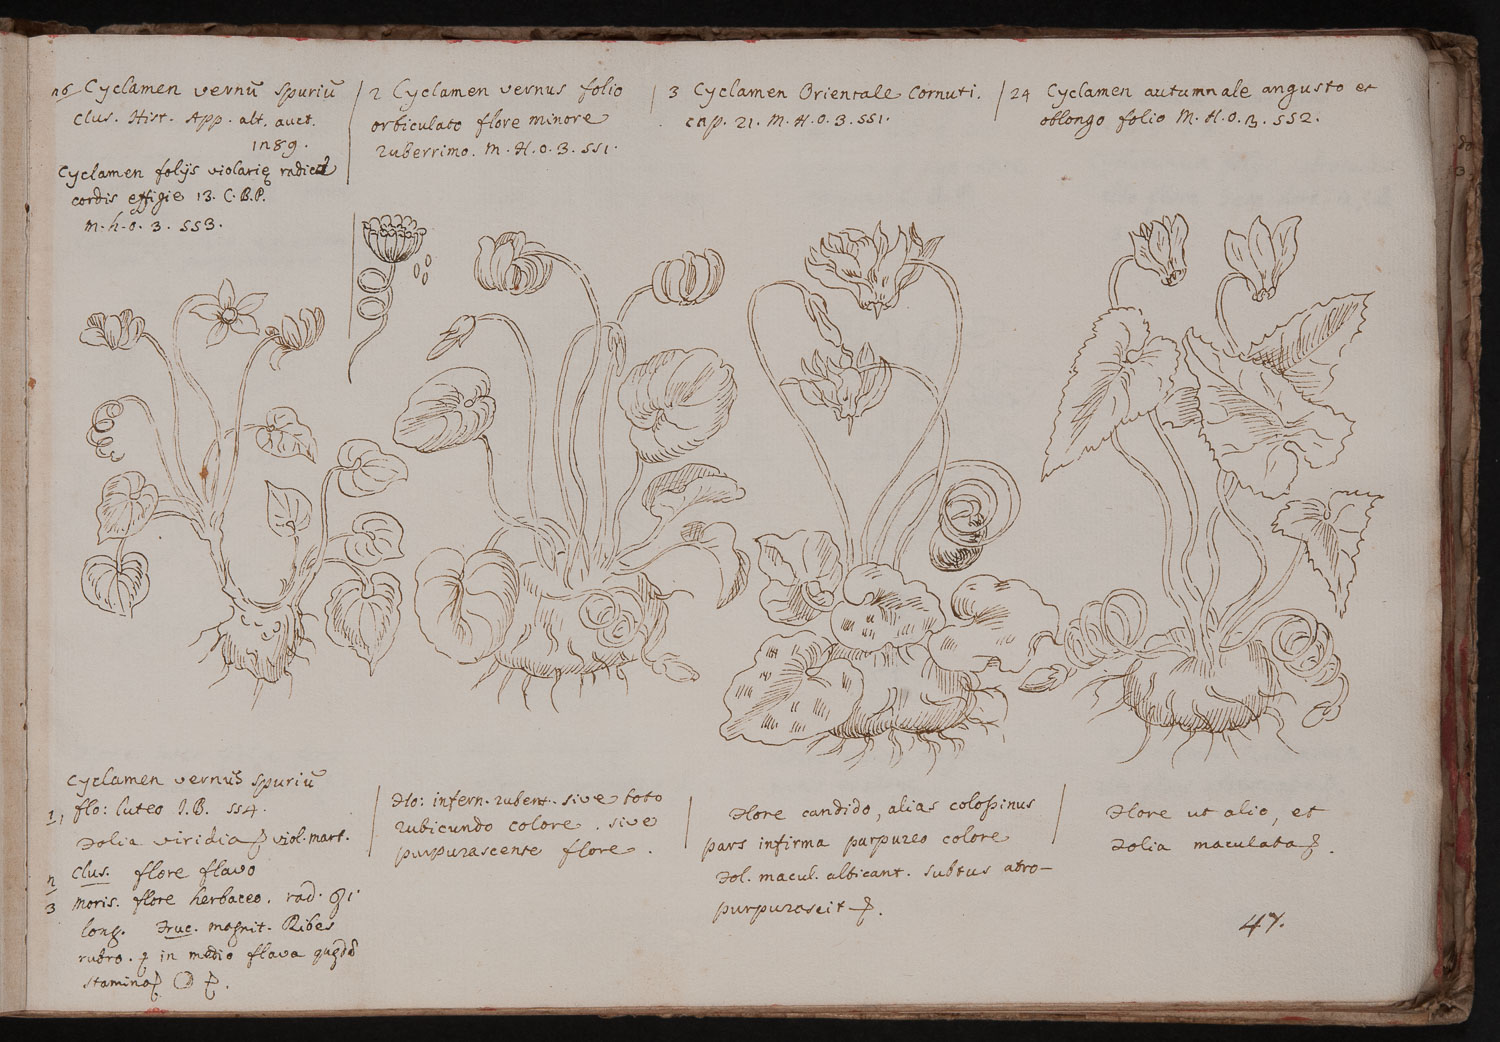 Cyclamen vernũ spuriũ
Clus. Hist. App. alt. auct.
1n89.
Cyclamen folijs violarię
cordis effigie 13. C.B.P.
M. h. o. 3. 553.
2 Cyclamen vernus folio
orbiculato flore minore
ruberrimo. M. H. o. 3. 551.
3 Cyclamen Orientale Cornuti.
cap. 21. M. H. o. 3. 551.
24 Cyclamen autumnale angusto et
oblongo folio M. H. o. 3. 552.
Cyclamen vernus spuriũ
1, flo: luteo I.B. 554.
Folia viridia viol. mart.
Clus. flore flavo
3 Moris. flore herbaceo. rad.
long. Fruc. magnit. Ribes
rubro. in medio flava
stamina
Flo: infern. rubent. sive toto
rubicundo colore. sive
purpurascente flore.
Flore candido, alias
pars infirma purpureo colore
Fol. macul. albicant. subtus atro-
purpurascit
Flore ut alio, et
Folia maculata
47.